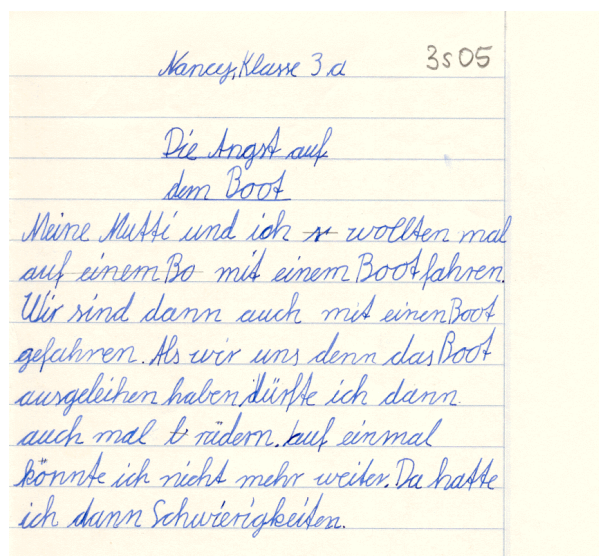 Nancy, Klasse 3 a 3s05
Die Angst auf
dem Boot
Meine Mutti und ich wollten mal
auf einem Bo mit einem Boot fahren.
Wir sind dann auch mit einen Boot
gefahren. Als wir uns denn das Boot
ausgeleihen haben, dürfte ich dann
auch mal rädern. Auf einmal
könnte ich nicht mehr weiter. Da hatte
ich dann Schwierigkeiten.